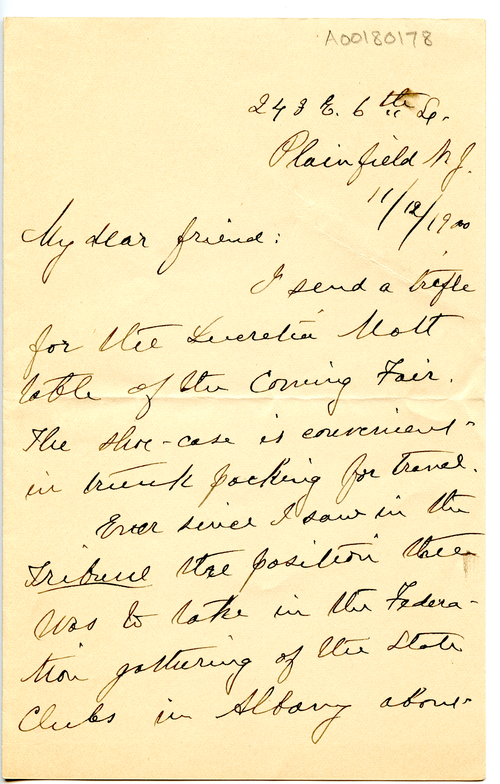 A00180178
243 E. 6th St.
Plainfield N.J.
11/12/1900
My dear friend:
I send a trifle
for the Lucretia Mott
table of the Coming Fair.
The shoe-case is convenient
in trunk packing for travel.
Ever since I saw in the
Tribune the position thee
was to take in the Federa-
tion gathering of the State
Clubs in Albany